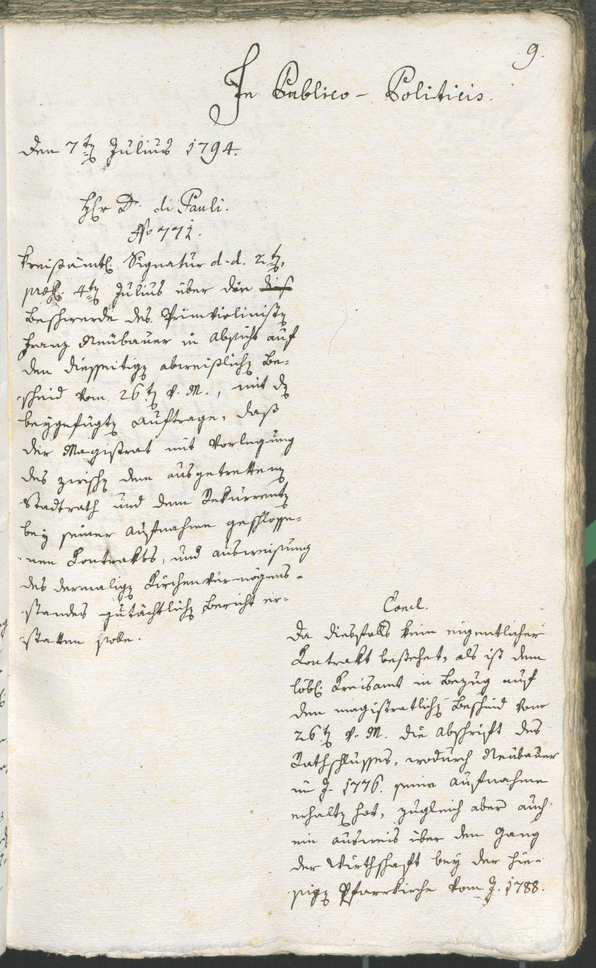 9.
In Publico-Politicis.
Den 7ten Julius 1794.
Hr Dr. di Pauli.
No 771.
Kreisämtl. Signatur d.d. 2ten,
præs. 4ten Julius über die
Beschwerde des Primviolinisten
Franz Neubauer in Absicht auf
den diesseitigen abweislichen Be-
scheid vom 26ten v. M., mit dem
beygefügten Auftrage, daß
der Magistrat mit Vorlegung
des zwischen dem ausgetrettenen
Stadtrath und dem Rekurrenten
bey seiner Aufnahme geschlosse-
nen Kontrakts, und Ausweisung
des dermaligen Kirchenvermögens-
standes gutächtlichen Bericht er-
statten solle.
Concl.
Da diesfalls kein eigentlicher
Kontrakt bestehet, als ist dem
löbl. Kreisamt in Bezug auf
den magistratlichen Bescheid vom
26ten v. M. die Abschrift des
Rathschlusses, wodurch Neubauer
im J. 1776. seine Aufnahme
erhalten hat, zugleich aber auch
ein Ausweis über den Gang
der Wirthschaft bey der hie-
sigen Pfarrkirche vom J. 1788.